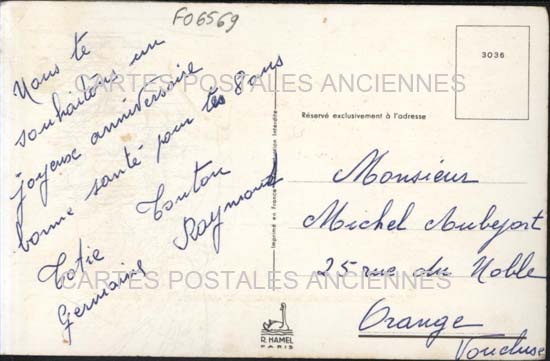 F06569
Nous te
souhaitons un
joyeux anniversaire
bonne santé pour tes 8 ans
Tonton
Raymond
Totie
Germaine
CARTES POSTALES ANCIENNES
CARTES POSTALES ANCIENNES
Imprimé en France
tion interdite
R. HAMEL
PARIS
3036
Réservé exclusivement à l'adresse
Monsieur
Michel Aubefort
25 rue du Noble
Orange
Vaucluse